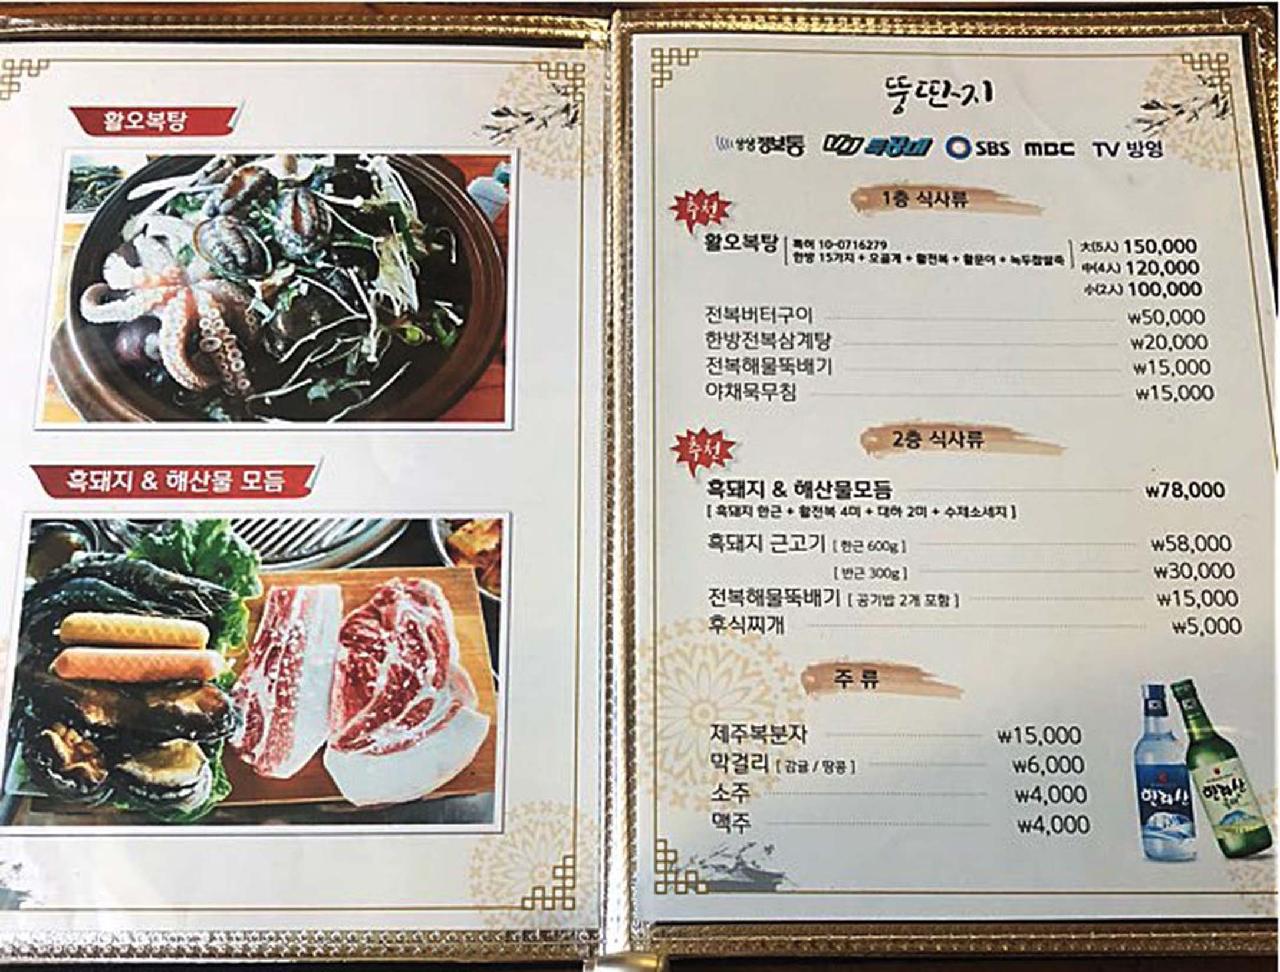 활오복탕
흑돼지 & 해산물 모듬
뚱딴지
생생정보통 VJ 특공대 SBS MBC TV 방영
추천
1층 식사류
활오복탕 특허 10-0716279 大(5人) 150,000
한방 15가지 + 오골계 + 활전복 + 활문어 + 녹두찹쌀죽
中(4人) 120,000
小(2人) 100,000
전복버터구이 ₩50,000
한방전복삼계탕 ₩20,000
전복해물뚝배기 ₩15,000
야채묵무침 ₩15,000
추천
2층 식사류
흑돼지 & 해산물모듬 ₩78,000
[ 흑돼지 한근 + 활전복 4미 + 대하 2미 + 수제소세지 ]
흑돼지 근고기 [ 한근 600g ] ₩58,000
[ 반근 300g ] ₩30,000
전복해물뚝배기 [ 공기밥 2개 포함 ] ₩15,000
후식찌개 ₩5,000
주 류
제주복분자 ₩15,000
막걸리 [ 감귤 / 땅콩 ] ₩6,000
소주 ₩4,000
맥주 ₩4,000
한라산
한라산